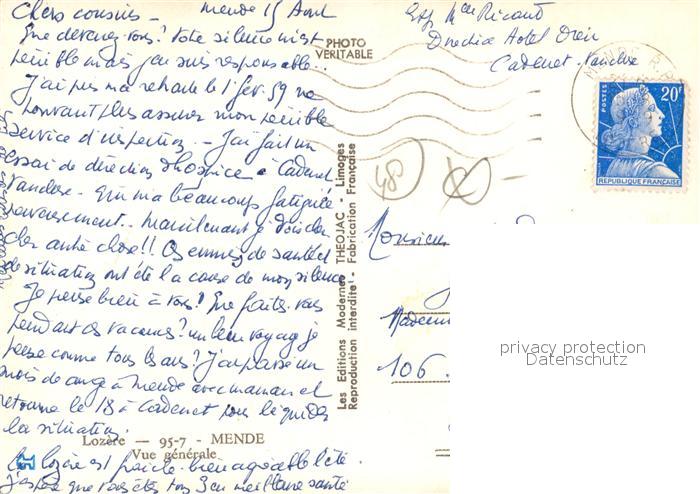 Chers cousins - Mende 15 Avril
Que devenez-vous? Votre silence m'est
pénible mais j'en suis responsable..
J'ai pris ma retraite le 1 fév. 59 ne
pouvant plus assurer mon pénible
service d'inspection. - J'ai fait un
essai de direction d'hospice à Cadenet
Vaucluse - Qui m'a beaucoup fatiguée
nerveusement.. Maintenant je dois cher
cher autre chose!! Ces ennuis de santé et
de situation ont été la cause de mon silence
Je pense bien à vous! Que faites-vous
pendant ces vacances? un beau voyage je
pense comme tous les ans? J'ai passé un
mois de congé à Mende avec maman et
retourne le 18 à Cadenet pour liquider
la situation.
Lozère — 95-7 - MENDE
Vue générale
La lozère est fraîche bien agréable l'été.
J'espère que vous êtes tous 3 en meilleure santé
PHOTO
VERITABLE
Les Editions Modernes THEOJAC - Limoges
Reproduction interdite - Fabrication Française
Exp Mlle Ricard
Directrice Hotel Dieu
Cadenet - Vaucluse
MENDE R.P.
POSTES
20F
REPUBLIQUE FRANÇAISE
48
Monsieur
106.
privacy protection
Datenschutz